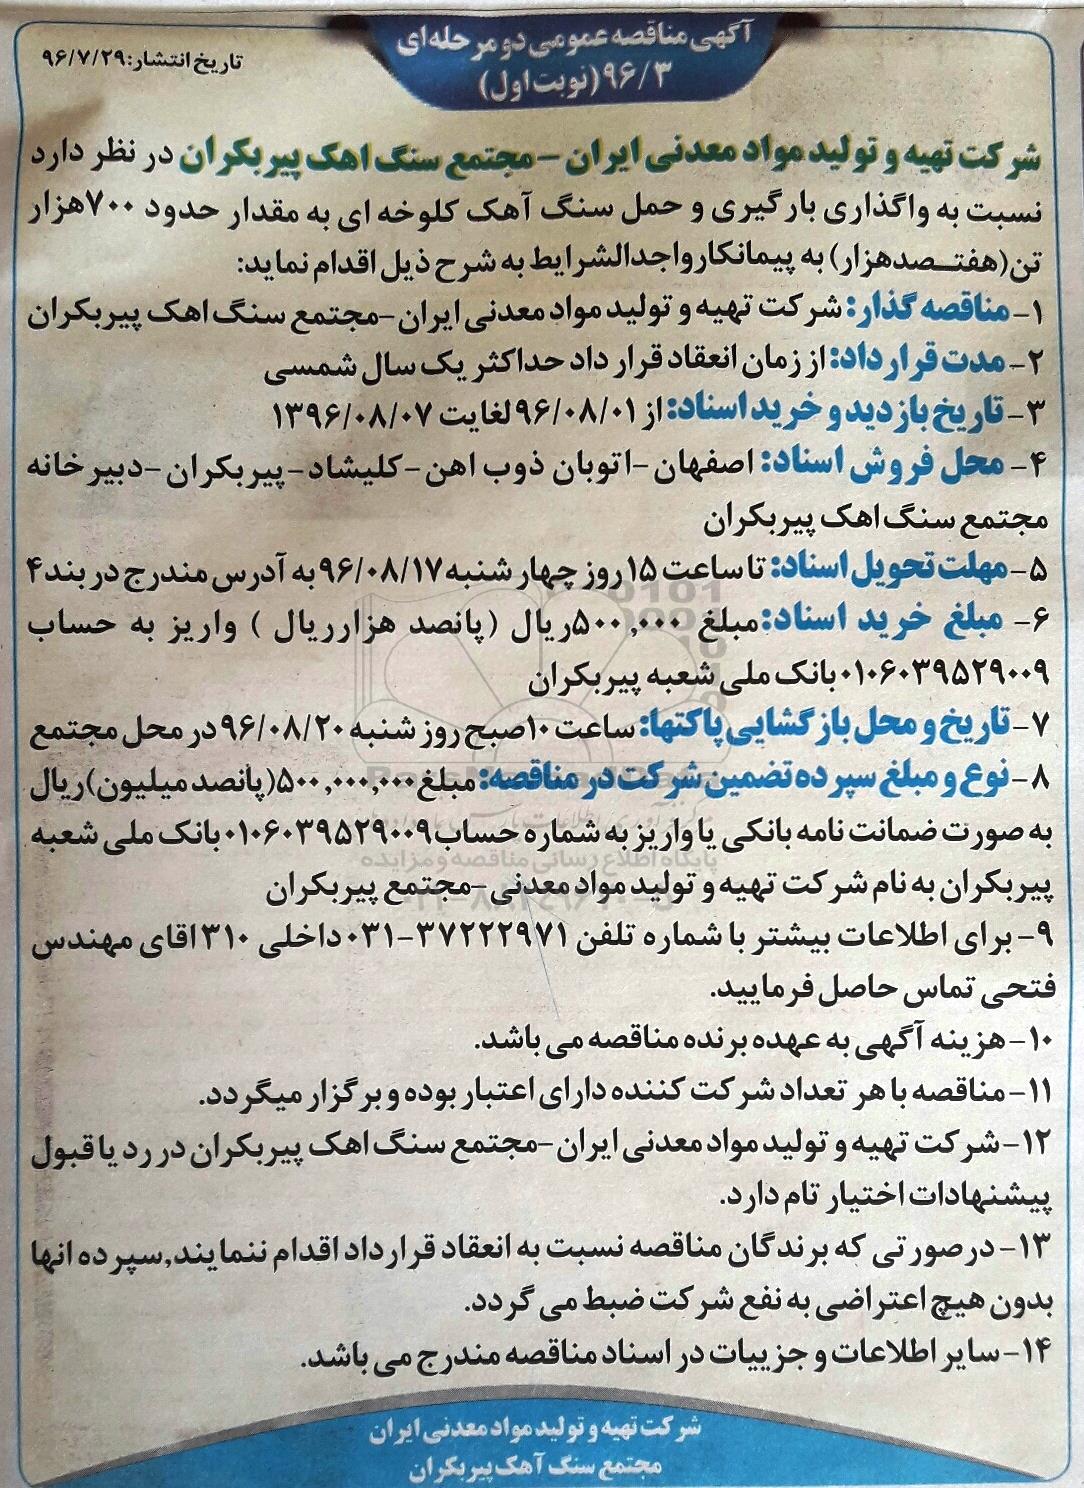 آگهی مناقصه عمومی دو مرحله‌ای
۹۶/۳ (نوبت اول)
تاریخ انتشار: ۹۶/۷/۲۹
شرکت تهیه و تولید مواد معدنی ایران - مجتمع سنگ اهک پیربکران در نظر دارد
نسبت به واگذاری بارگیری و حمل سنگ آهک کلوخه ای به مقدار حدود ۷۰۰هزار
تن(هفتصدهزار) به پیمانکار واجدالشرایط به شرح ذیل اقدام نماید:
۱- مناقصه گذار: شرکت تهیه و تولید مواد معدنی ایران -مجتمع سنگ اهک پیربکران
۲- مدت قرارداد: از زمان انعقاد قرار داد حداکثر یک سال شمسی
۳- تاریخ بازدید و خرید اسناد: از ۹۶/۰۸/۰۱ لغایت ۱۳۹۶/۰۸/۰۷
۴- محل فروش اسناد: اصفهان -اتوبان ذوب اهن -کلیشاد -پیربکران -دبیرخانه
مجتمع سنگ اهک پیربکران
۵- مهلت تحویل اسناد: تا ساعت ۱۵ روز چهار شنبه ۹۶/۰۸/۱۷ به آدرس مندرج در بند ۴
۶- مبلغ خرید اسناد: مبلغ ۵۰۰,۰۰۰ریال (پانصد هزار ریال ) واریز به حساب
۰۱۰۶۰۳۹۵۲۹۰۰۹ بانک ملی شعبه پیربکران
۷- تاریخ و محل بازگشایی پاکتها: ساعت ۱۰صبح روز شنبه ۹۶/۰۸/۲۰ در محل مجتمع
۸- نوع و مبلغ سپرده تضمین شرکت در مناقصه: مبلغ ۵۰۰,۰۰۰,۰۰۰(پانصد میلیون)ریال
به صورت ضمانت نامه بانکی یا واریز به شماره حساب ۰۱۰۶۰۳۹۵۲۹۰۰۹ بانک ملی شعبه
پیربکران به نام شرکت تهیه و تولید مواد معدنی -مجتمع پیربکران
۹- برای اطلاعات بیشتر با شماره تلفن ۳۷۲۲۲۹۷۱-۰۳۱ داخلی ۳۱۰ اقای مهندس
فتحی تماس حاصل فرمایید.
۱۰- هزینه آگهی به عهده برنده مناقصه می باشد.
۱۱- مناقصه با هر تعداد شرکت کننده دارای اعتبار بوده و برگزار میگردد.
۱۲- شرکت تهیه و تولید مواد معدنی ایران -مجتمع سنگ اهک پیربکران در رد یا قبول
پیشنهادات اختیار تام دارد.
۱۳- در صورتی که برندگان مناقصه نسبت به انعقاد قرارداد اقدام ننمایند,سپرده انها
بدون هیچ اعتراضی به نفع شرکت ضبط می گردد.
۱۴- سایر اطلاعات و جزییات در اسناد مناقصه مندرج می باشد.
شرکت تهیه و تولید مواد معدنی ایران
مجتمع سنگ آهک پیربکران
پایگاه اطلاع رسانی مناقصه و مزایده